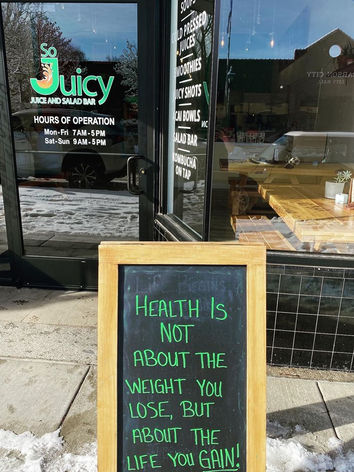 So
Juicy
JUICE AND SALAD BAR
HOURS OF OPERATION
Mon-Fri 7AM-5PM
Sat-Sun 9AM-5PM
SOUPS
COLD PRESSED
JUICES
SMOOTHIES
JUICY SHOTS
ACAI BOWLS
SALAD BAR
KOMBUCHA
ON TAP
HEALTH IS
NOT
ABOUT THE
WEIGHT YOU
LOSE, BUT
ABOUT THE
LIFE YOU GAIN!